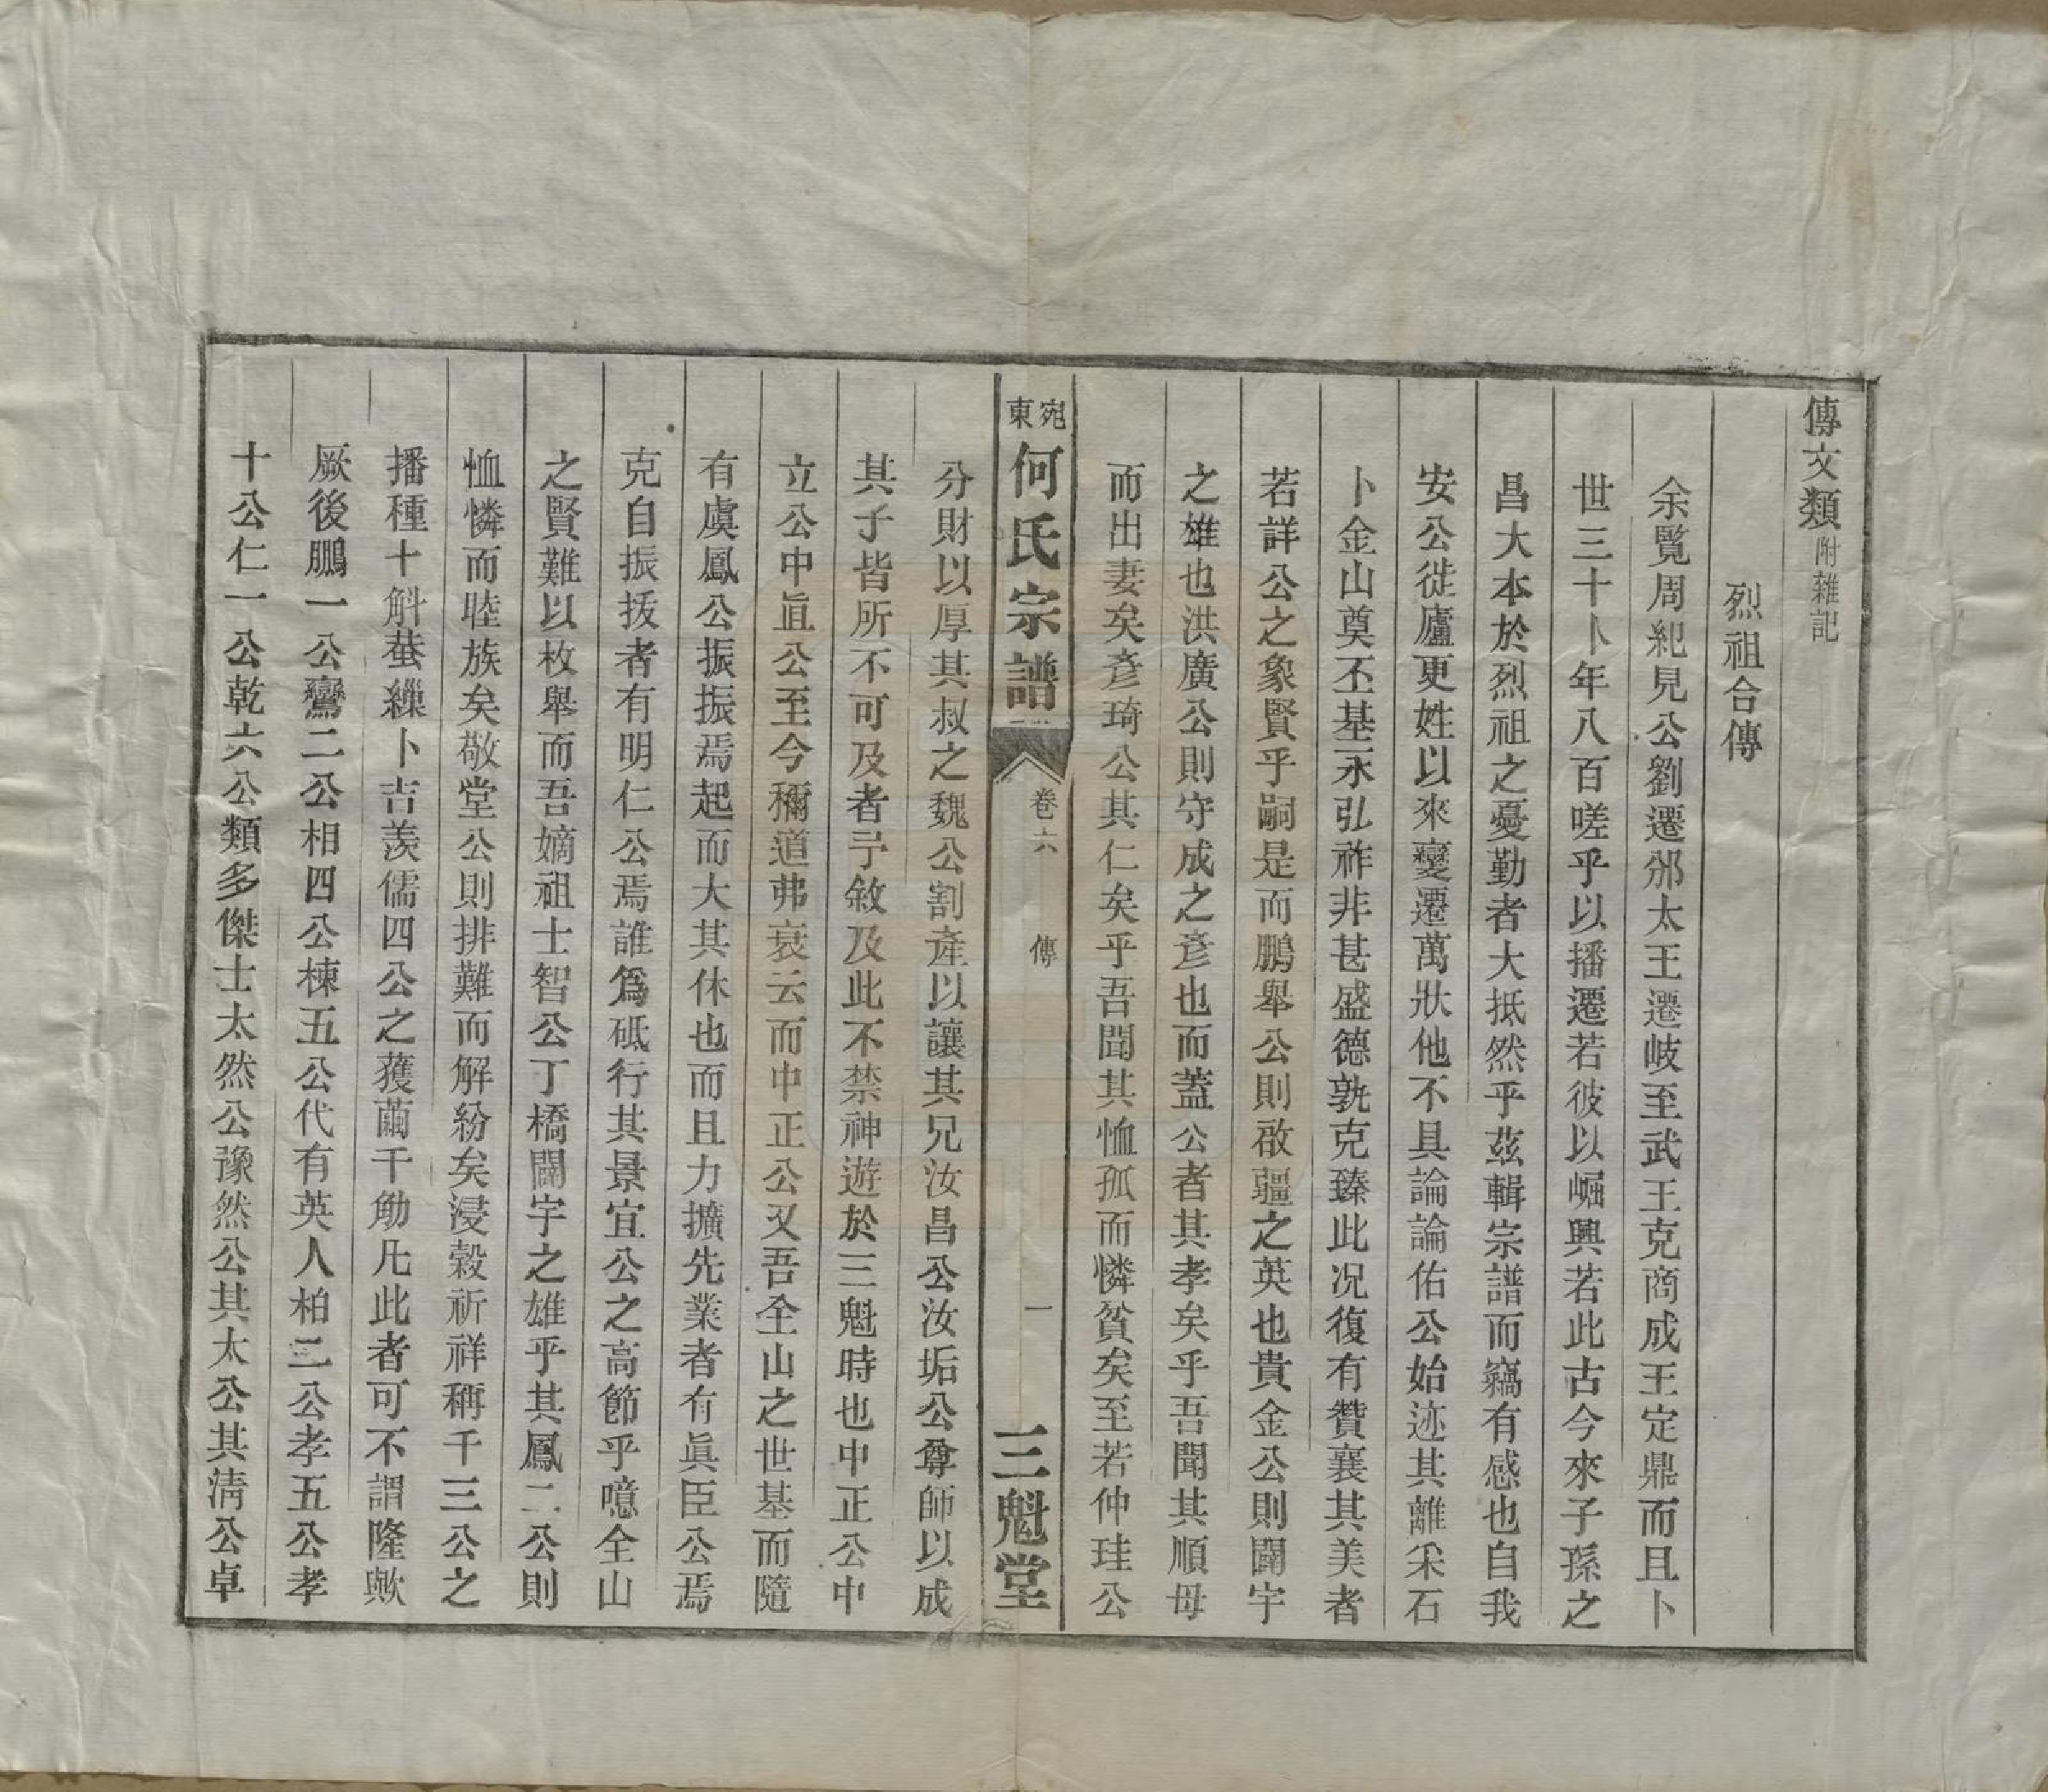 傳文類附雜記
烈祖合傳
余覽周紀見公劉遷邠太王遷岐至武王克商成王定鼎而且卜
世三十卜年八百嗟乎以播遷若彼以崛興若此古今來子孫之
昌大本於烈祖之憂勤者大抵然乎茲輯宗譜而竊有感也自我
安公徙廬更姓以來變遷萬狀他不具論論佑公始迹其離采石
卜金山奠丕基永弘祚非甚盛德孰克臻此况復有贊襄其美者
若詳公之象賢乎嗣是而鵬舉公則啟疆之英也貴金公則闢宇
之雄也洪廣公則守成之彥也而蓋公者其孝矣乎吾聞其順母
而出妻矣彥琦公其仁矣乎吾聞其恤孤而憐貧矣至若仲珪公
宛東何氏宗譜 卷六 傳 一 三魁堂
分財以厚其叔之魏公割產以讓其兄汝昌公汝垢公尊師以成
其子皆所不可及者予敘及此不禁神遊於三魁時也中正公中
立公中眞公至今穪道弗衰云而中正公又吾全山之世基而隨
有虞鳳公振振焉起而大其休也而且力擴先業者有眞臣公焉
克自振拔者有明仁公焉誰爲砥行其景宜公之高節乎噫全山
之賢難以枚舉而吾嫡祖士智公丁橋闢宇之雄乎其鳳二公則
恤憐而睦族矣敬堂公則排難而解紛矣浸穀祈祥稱千三公之
播種十斛蚕繅卜吉羨儒四公之蒦繭千觔凡此者可不謂隆歟
厥後鵬一公鸞二公相四公棟五公代有英人柏二公孝五公孝
十公仁一公乾六公類多傑士太然公豫然公其太公其淸公卓